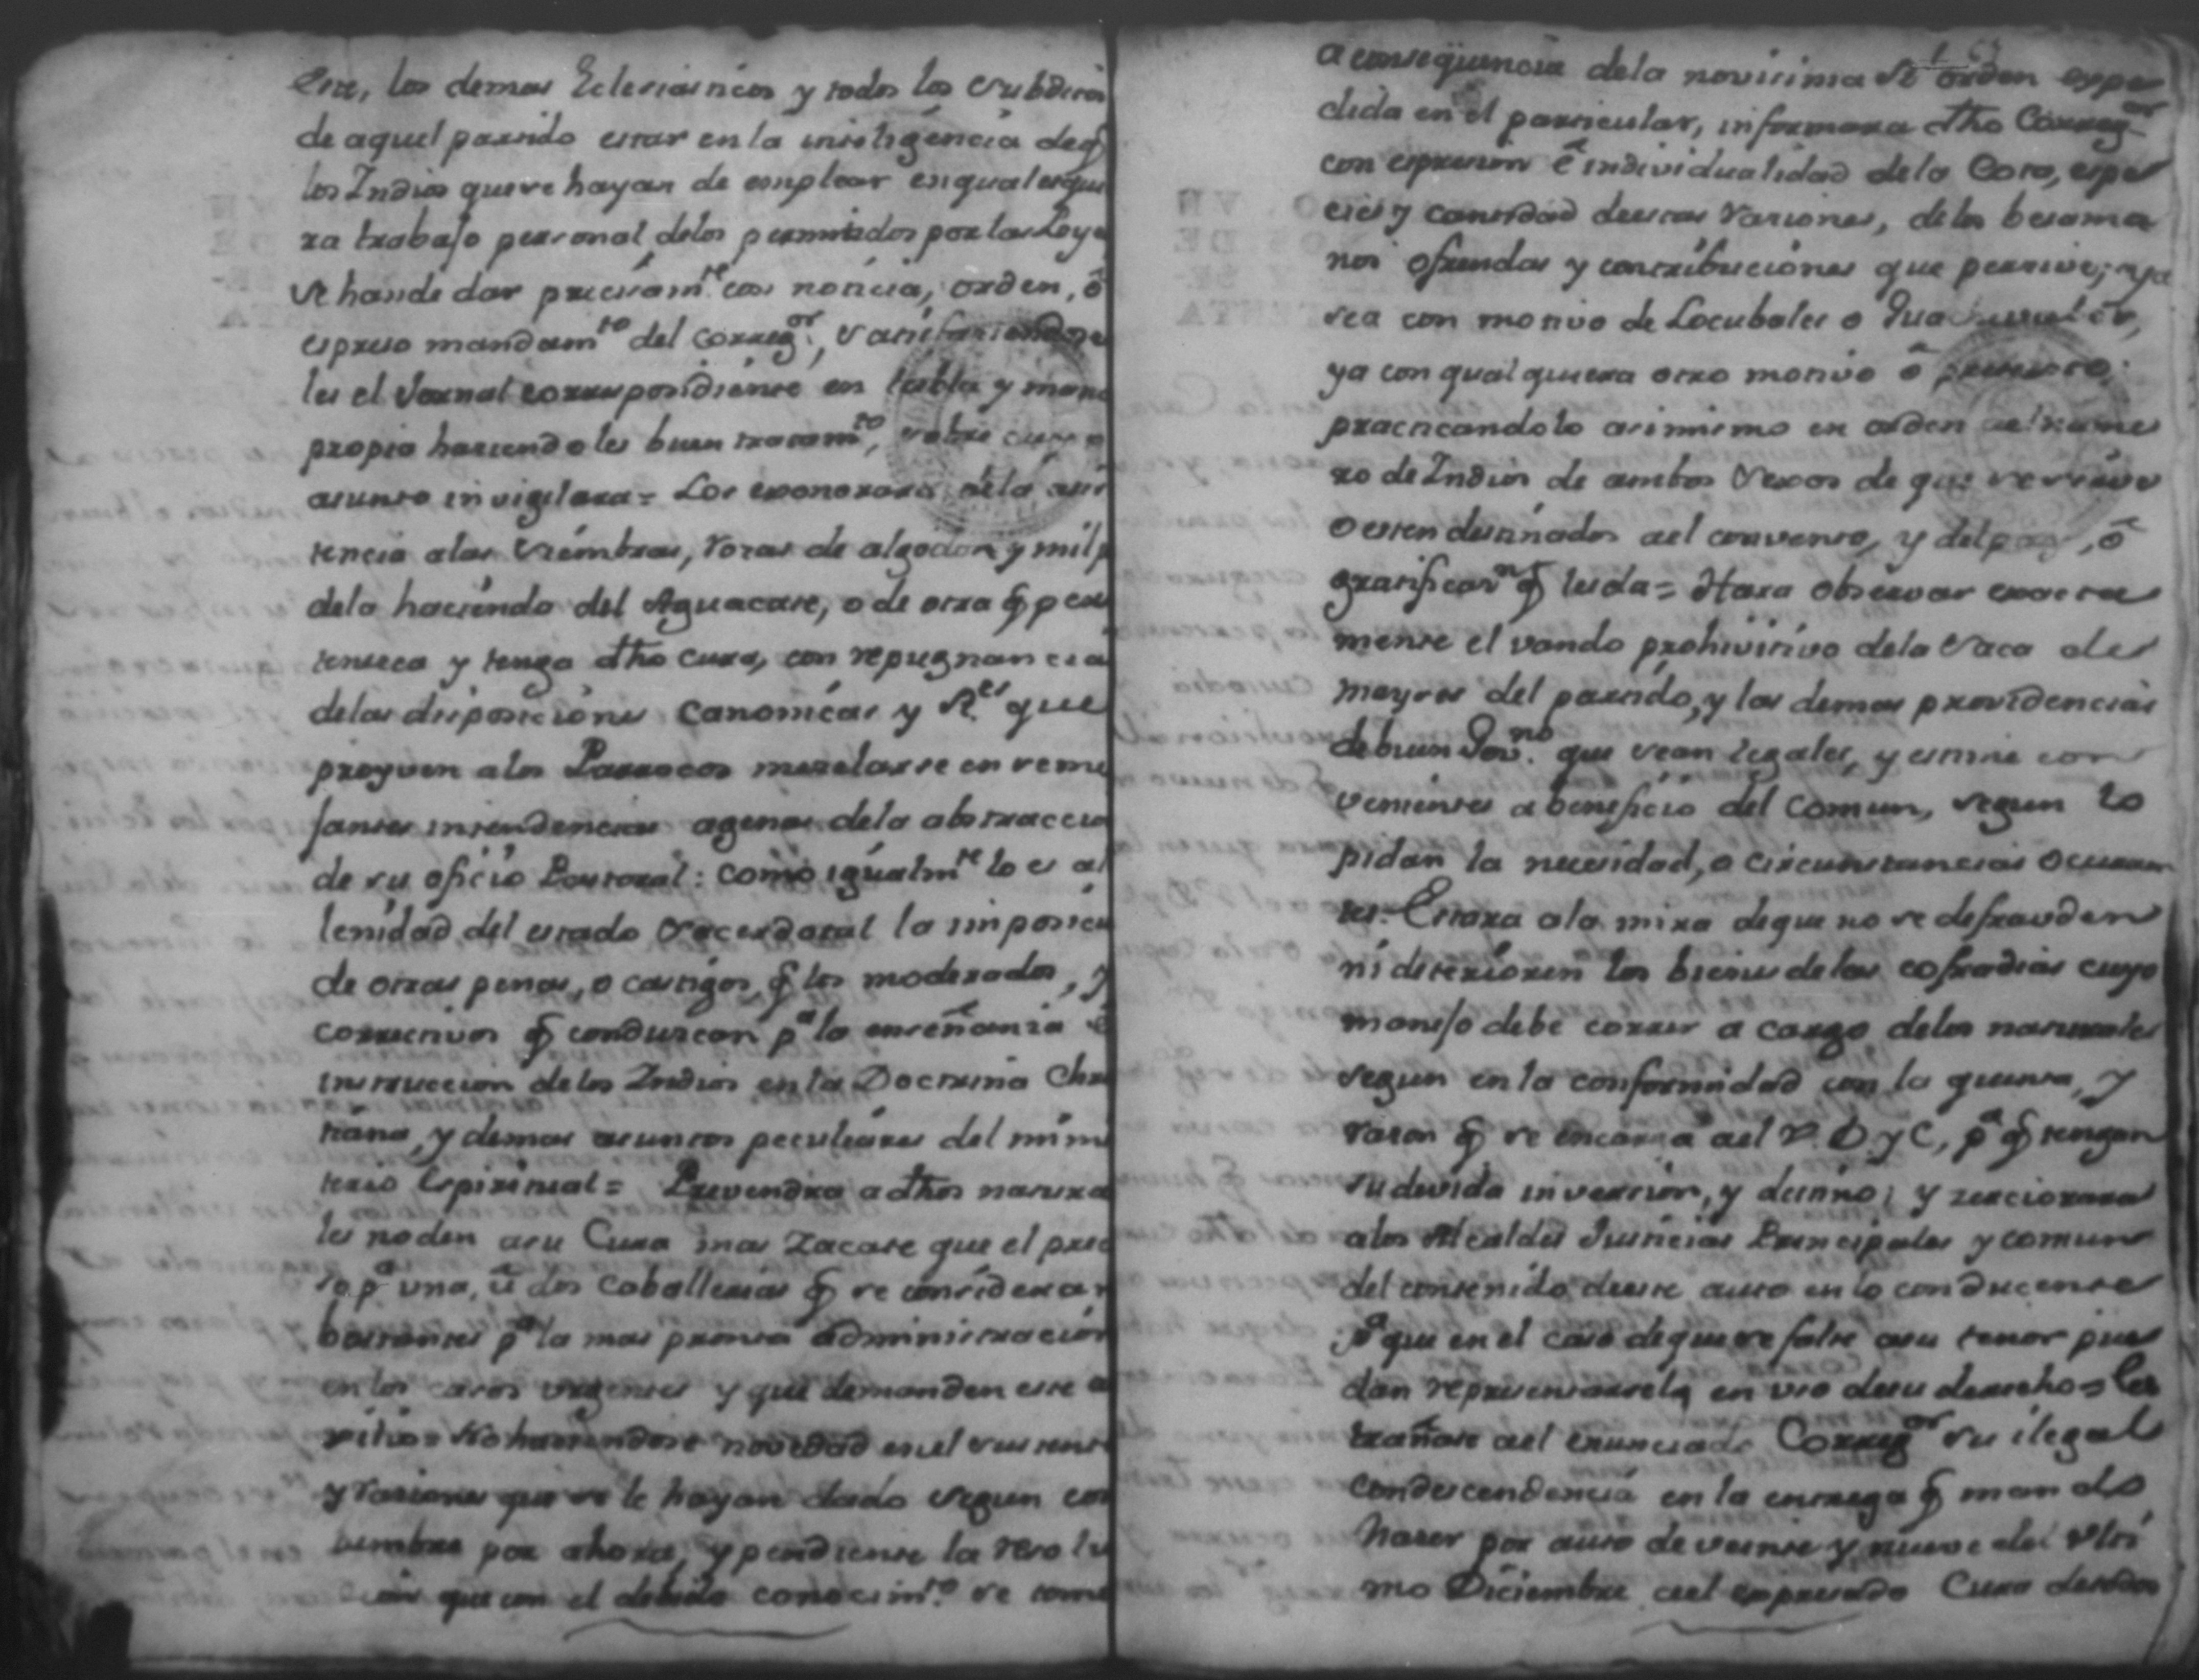 Este, los demas Eclesiasticos y todos los Subditos
de aquel partido estar en la inteligencia de q̃
los Indios que se hayan de emplear en qualesquie
ra trabajo personal delos permitidos por las Leyes
se hande dar precisam.te con noticia, orden, ô
espreso mandam.to del Correg.or, Satisfaciendose
les el Jornal correspondiente en tabla y mano
propia haciendoles buen tratam.to, sobre cuyo
asunto invigilara = Los exonorara dela asis
tencia alas Siembras, rozas de algodon y milp
dela hacienda del Aguacate, o de otra q̃ per
tenesca y tenga dho cura, con repugnancia
delas disposiciones Canonicas y R.es que
proyven alos Parrocos mezclarse en seme
jantes intendencias agenas dela abstraccion
de su oficio Pastoral: como igualm.te lo es al
lenidad del estado Sacerdotal la imposicion
de otras penas, o castigos, q̃ los moderados, y
correctivos q̃ conduzcan p.a la enseñanza ê
instruccion delos Indios en la Doctrina Chris
tiana, y demas asuntos peculiares del minis
terio Espiritual = Prevendra a dhos natura
les noden asu Cura mas Zacate que el prec
so p.a una, û dos Caballerias q̃ se consideran
bastantes p.a la mas pronta administracion
en los casos urgentes y que demanden este a
silio = No haciendose novedad en el sustento
y raciones que se le hayan dado segun cos
tumbre por ahora, y pendiente la resolu
cion que con el debido conocim.to se tome
a consequencia dela novisima R.l orden espe
dida en el particular, informara dho Correg.or
con espresion ê individualidad dela Cota, espe
cies y cantidad deestas raciones, delos besama
nos ofrendas y contribuciones que percive, ya
sea con motivo de Locubales o
ya con qualquiera otro motivo ô pretesto;
practicandolo asimismo en orden ael nume
ro de Indios de ambos Sexos de que se sirve
o esten destinados ael convento, y del pago, ô
gratificac.n q̃ les da = Hara observar exacta
mente el vando prohivitivo dela Saca de
mayses del partido, y las demas providencias
debuen Gov.no que sean legales, y estime con
venientes a beneficio del comun, segun lo
pidan la necesidad, o circunstancias ocurren
tes. Estara ala mira deque no se defrauden
ni deterioren los bienes delas cofradias cuyo
manejo debe correr a cargo delos naturales
segun en la conformidad con la quenta, y
razon q̃ se encarga ael P. D. y C, p.a q̃ tengan
su devida inversion, y destino; y zerciorara
alos Alcaldes Justicias Principales y comun
del contenido deeste auto en lo conducente
p.a que en el caso deque se falte asu tenor pue
dan representarsela en uso desu derecho = Es
trañase ael enunciado Correg.or su ilegal
condescendencia en la entrega q̃ mando
hazer por auto de veinte y nueve del ulti
mo Diciembre ael espresado Cura detodos